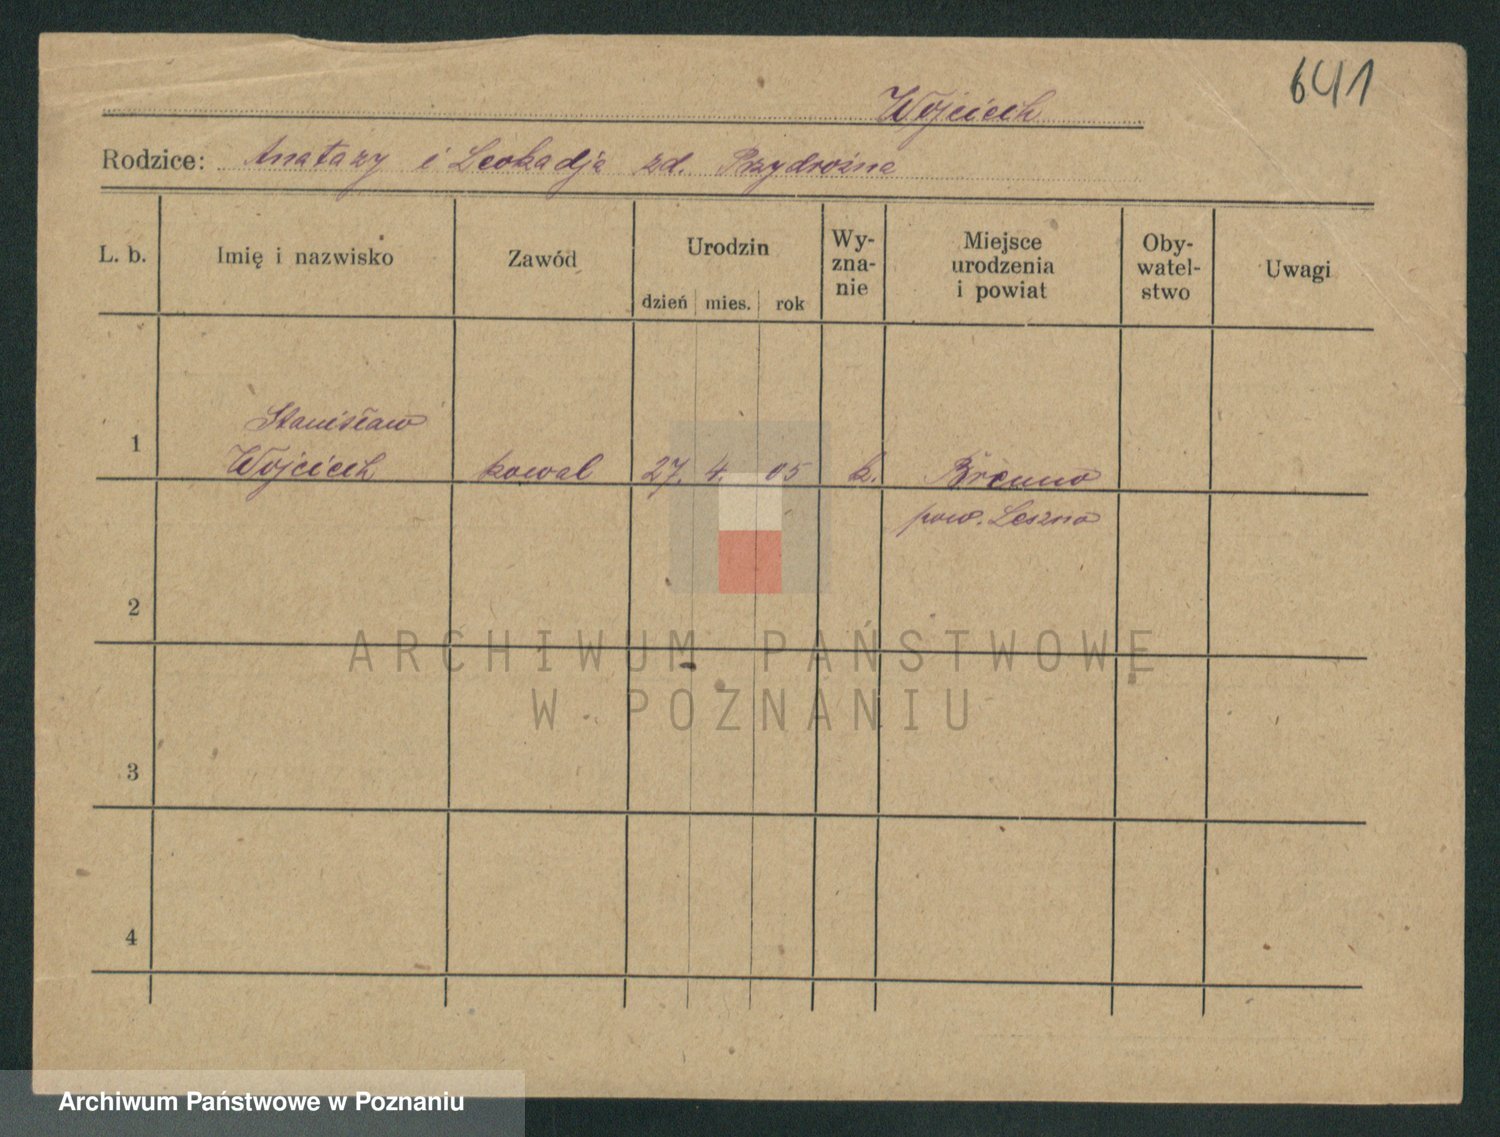 641
Wojciech
Rodzice: Anatazy i Leokadja zd. Przydrożna
L. b. Imię i nazwisko Zawód Urodzin dzień mies. rok Wy-zna-nie Miejsce urodzenia i powiat Oby-watel-stwo Uwagi
Stanisław
1 Wojciech kowal 27. 4. 05 k. Brenno
pow. Leszno
2
ARCHIWUM PAŃSTWOWE
W POZNANIU
3
4
Archiwum Państwowe w Poznaniu